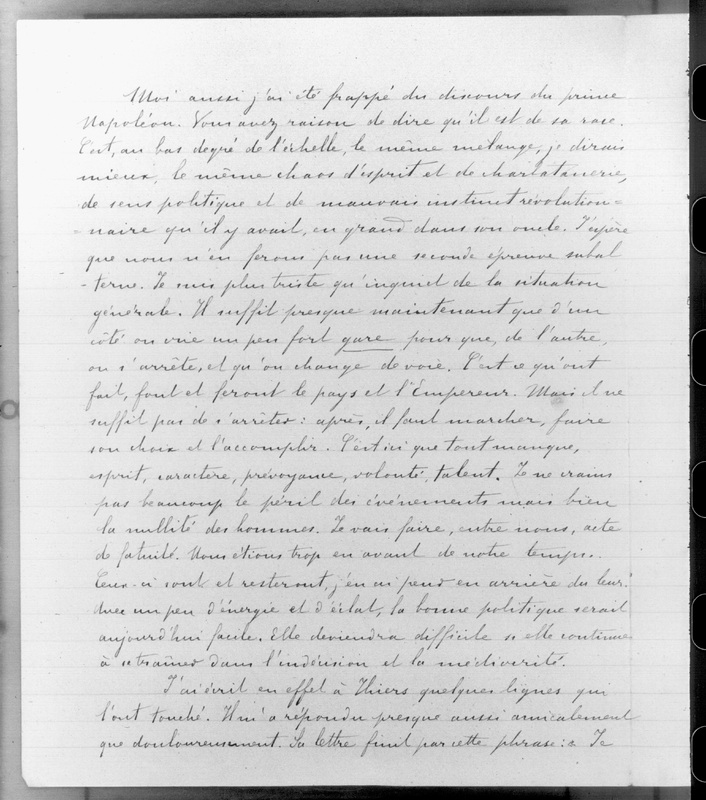 Moi aussi j'ai été frappé du discours du prince
Napoléon. Vous avez raison de dire qu'il est de sa race.
C'est, au bas degré de l'échelle, le même mélange, je dirais
mieux, le même chaos d'esprit et de charlatanerie,
de sens politique et de mauvais instinct révolution=
=naire qu'il y avait, en grand dans son oncle. J'espère
que nous n'en ferons pas une seconde épreuve subal
-terne. Je suis plus triste qu'inquiet de la situation
générale. Il suffit presque maintenant que d'un
côté on crie un peu fort gare pour que, de l'autre,
on s'arrête, et qu'on change de voie. C'est ce qu'ont
fait, font et feront le pays et l'Empereur. Mais il ne
suffit pas de s'arrêter: après, il faut marcher, faire
son choix et l'accomplir. C'est ici que tout manque,
esprit, caractère, prévoyance, volonté, talent. Je ne crains
pas beaucoup le péril des événements mais bien
la nullité des hommes. Je vais faire, entre nous, acte
de fatuité. Nous étions trop en avant de notre temps.
Ceux-ci sont et resteront, j'en ai peur en arrière du leur.
Avec un peu d'énergie et d'éclat, la bonne politique serait
aujourd'hui facile. Elle deviendra difficile si elle continue
à se traîner dans l'indécision et la médiocrité.
J'ai écrit en effet à Thiers quelques lignes qui
l'ont touché. Il m'a répondu presque aussi amicalement
que douloureusement. Sa lettre finit par cette phrase: « Je